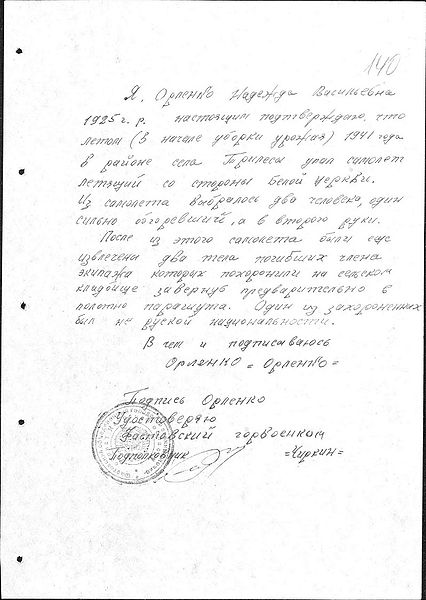 140
Я, Орленко Надежда Васильевна
1925 г. р. настоящим подтверждаю, что
летом (в начале уборки урожая) 1941 года
в районе села Трилесы упал самолет
летящий со стороны Белой Церкви.
Из самолетта выбралось два человека, один
сильно обгоревший, а в второго руки.
После из этого самолетта были еще
извлечены два тела погибших члена
экипажа которих похоронили на сельском
кладбище завернув предварительно в
полотно парашута. Один из захороненных
был не руской национальности.
В чем и подписаваюсь
Орленко = Орленко =
Подпись Орленко
Удостоверяю
Фастовский горвоенком
Подполковник = Чиркин =